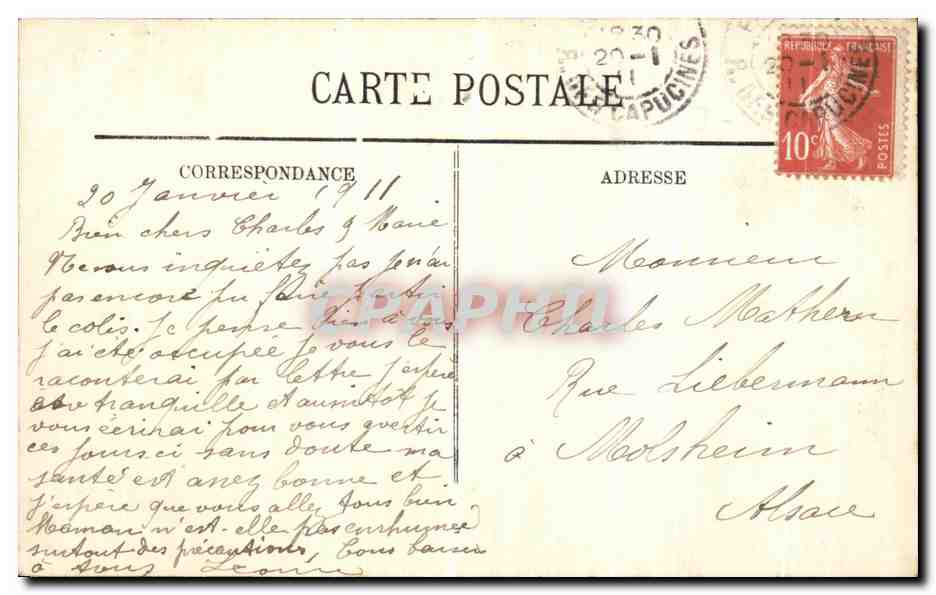 CARTE POSTALE
18 30
20 - 1
11
CAPUCINES
REPUBLIQUE FRANÇAISE
10c
POSTES
CORRESPONDANCE
ADRESSE
20 Janvier 1911
Bien chers Charles & Marie
Ne vous inquiétez pas je n'ai
pas encore pu faire partir
le colis. Je pense bien à vous
j'ai été occupée je vous le
raconterai par lettre j'espère
être tranquille et aussitôt je
vous écrirai pour vous avertir
ces jours ci sans doute ma
santé est assez bonne et
j'espère que vous allez tous bien
Maman n'est-elle pas enrhumée
surtout des précautions, bons baisers
à tous
Monsieur
Charles Mathern
Rue Liebermann
à Molsheim
Alsace
CPAPHIL